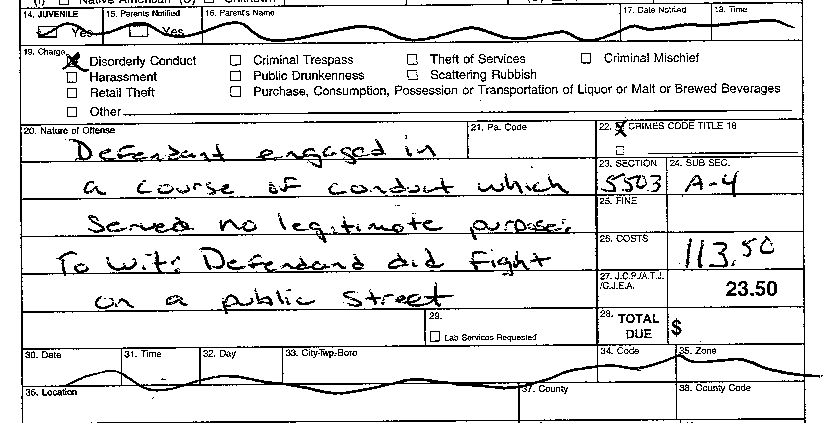 (I) Native American (U) Unknown
14. JUVENILE 15. Parents Notified 16. Parent's Name 17. Date Notified 18. Time
Yes Yes
19. Charge
Disorderly Conduct Criminal Trespass Theft of Services Criminal Mischief
Harassment Public Drunkenness Scattering Rubbish
Retail Theft Purchase, Consumption, Possession or Transportation of Liquor or Malt or Brewed Beverages
Other
20. Nature of Offense 21. Pa. Code 22. X CRIMES CODE TITLE 18
Defendant engaged in
23. SECTION 24. SUB SEC.
a course of conduct which 5503 A-4
25. FINE
Served no legitimate purpose:
26. COSTS
To wit: Defendand did fight 113.50
27. J.C.P./A.T.J. /C.J.E.A. 23.50
on a public street
28. TOTAL DUE $
29. Lab Services Requested
30. Date 31. Time 32. Day 33. City-Twp-Boro 34. Code 35. Zone
36. Location 37. County 38. County Code